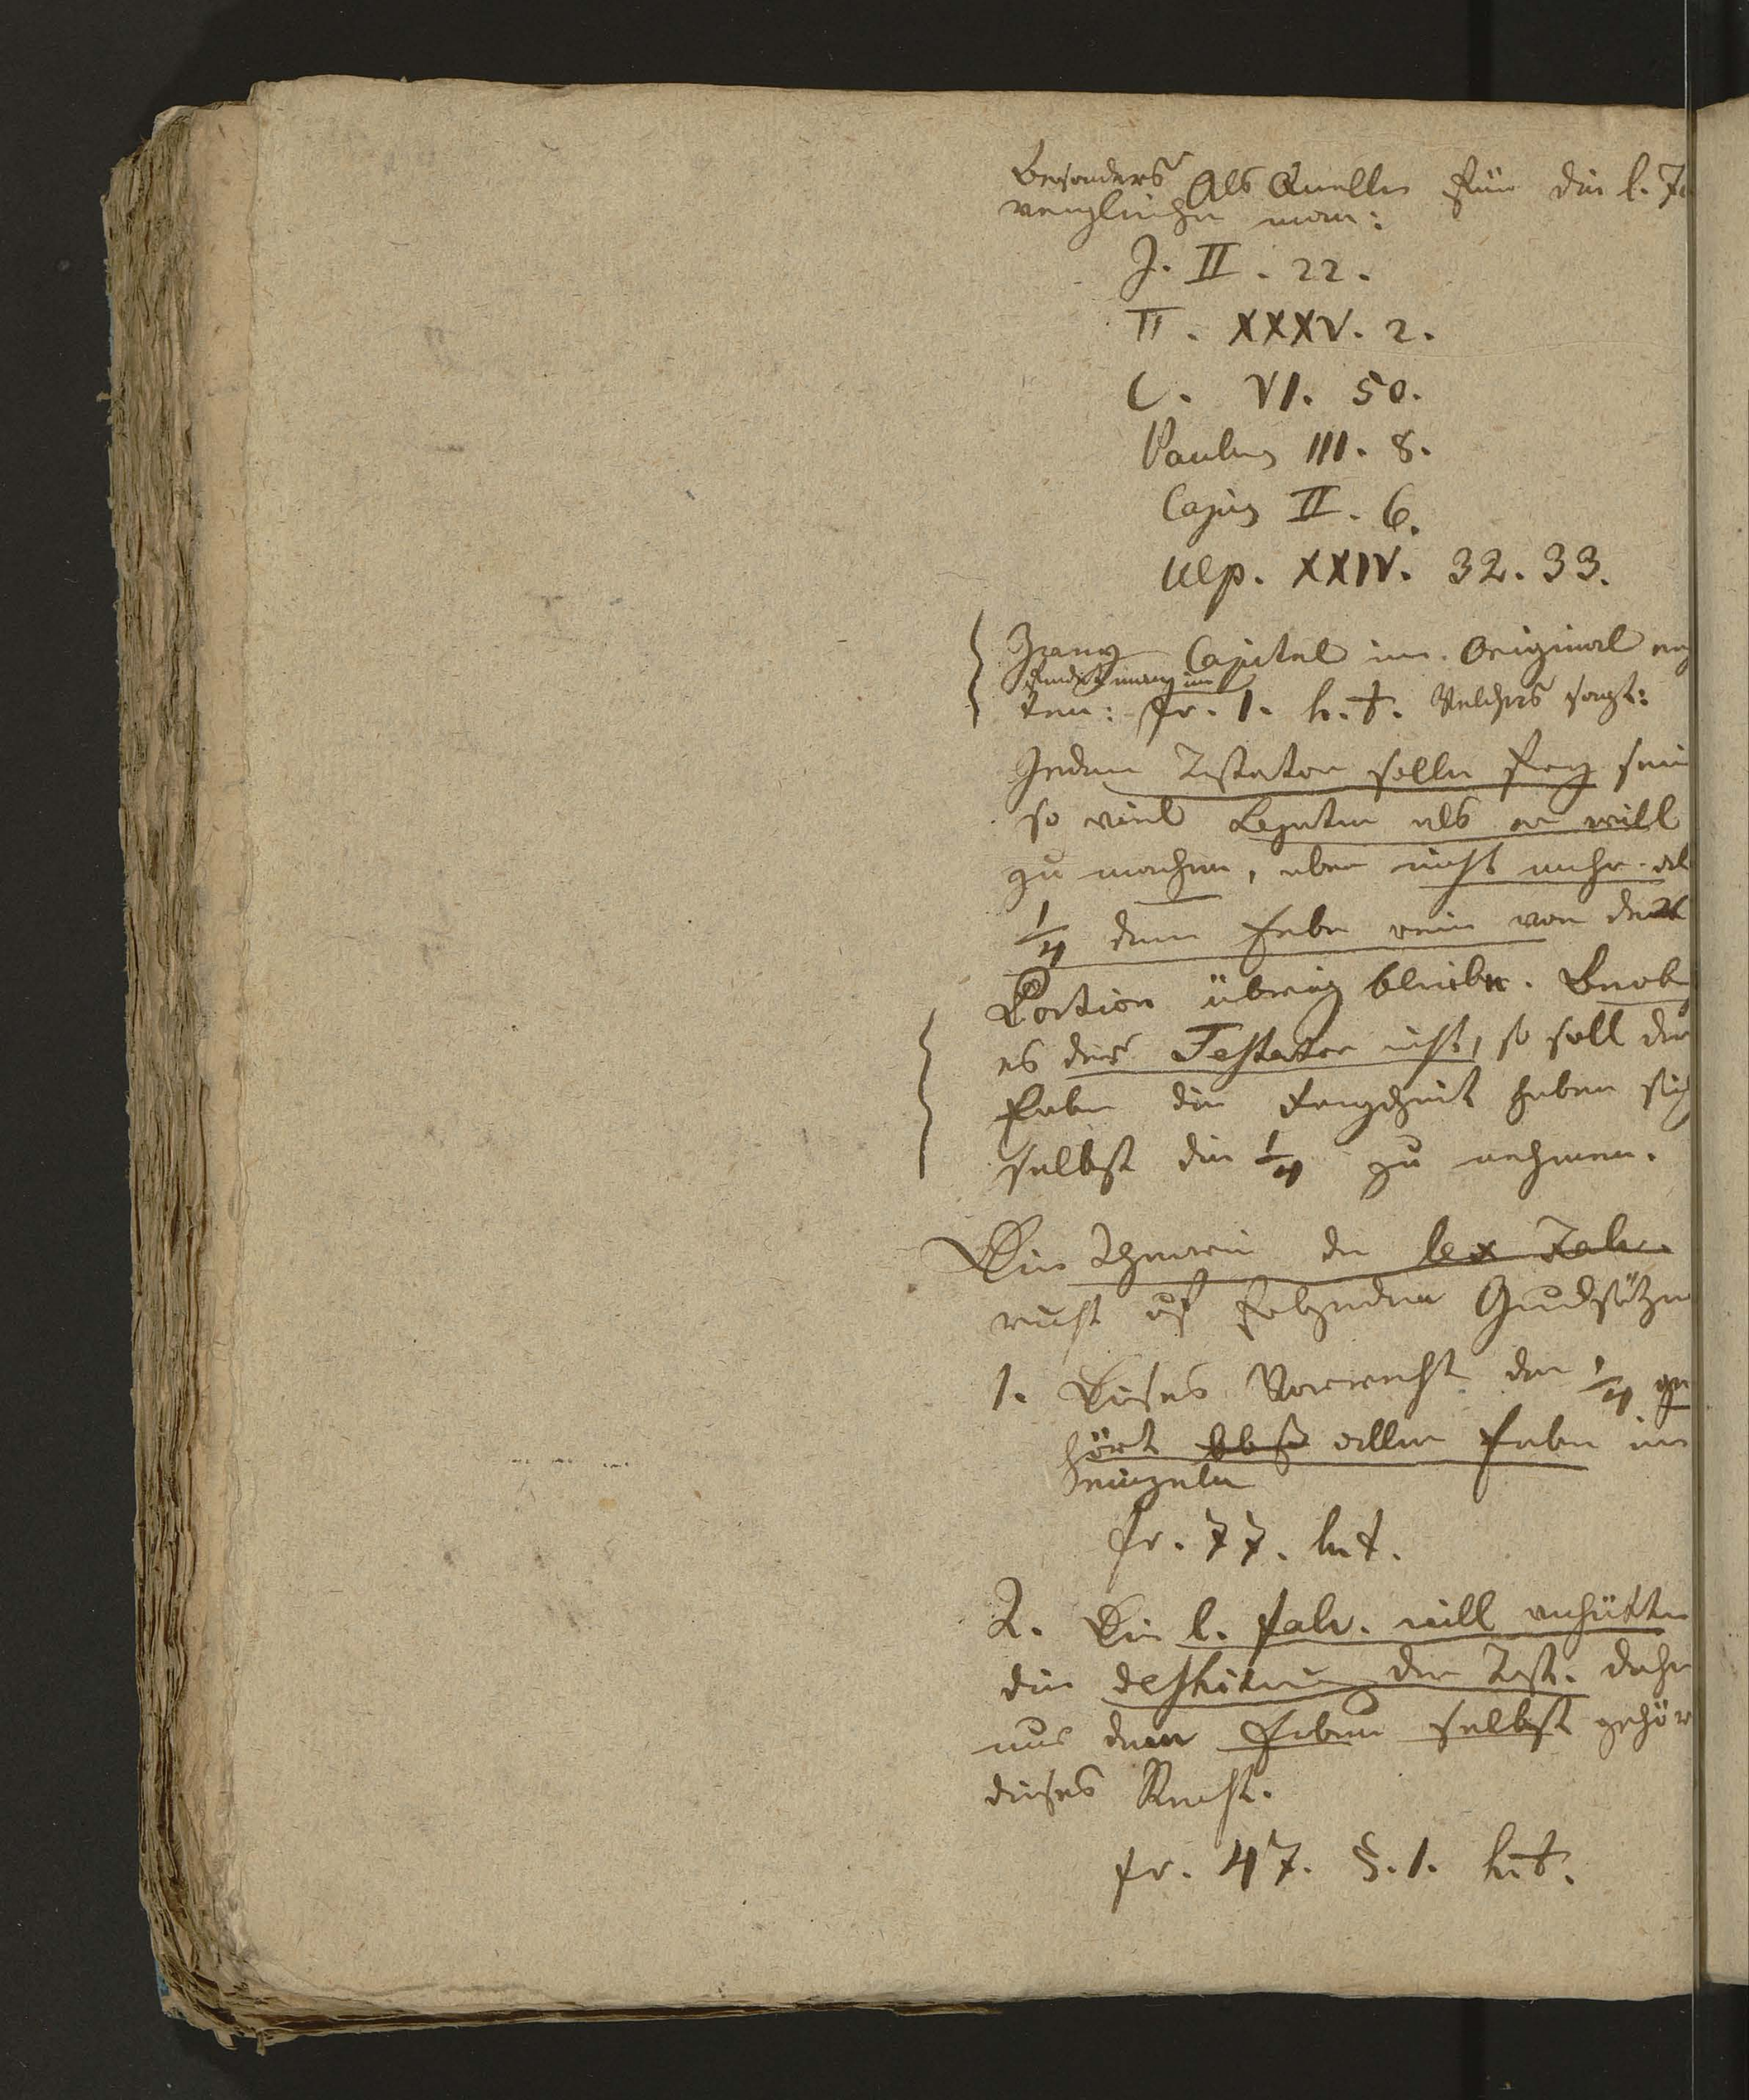 Besonders Als Quellen für die l. Fa
vergleiche man:
J. II. 22.
Π. XXXV. 2.
C. VI. 50.
Paulus III. 8.
Cajus II. 6.
Ulp. XXIV. 32. 33.
Capitel im Original
findet man im
ten: fr. 1. h. t. Welches sagt:
Jedem Testator solle frey sein
so viel Legaten als er will
zu machen, aber nicht mehr als
1/4 dem Erbe rein von der
Portion übrig bleiben.
es der Testator nicht, so soll der
Erbe die Freyheit haben sich
selbst die 1/4 zu nehmen.
Die Theorie der lex Falc.
ruht auf folgenden Grundsätzen
1. Dieses Vorrecht der 1/4 ge
hört allen Erben im
einzeln
fr. 77. h. t.
2. Die l. Falc. will verhüten
die der Test. daher
nur dem Erben selbst gehör
dieses Recht.
fr. 47. §. 1. h. t.